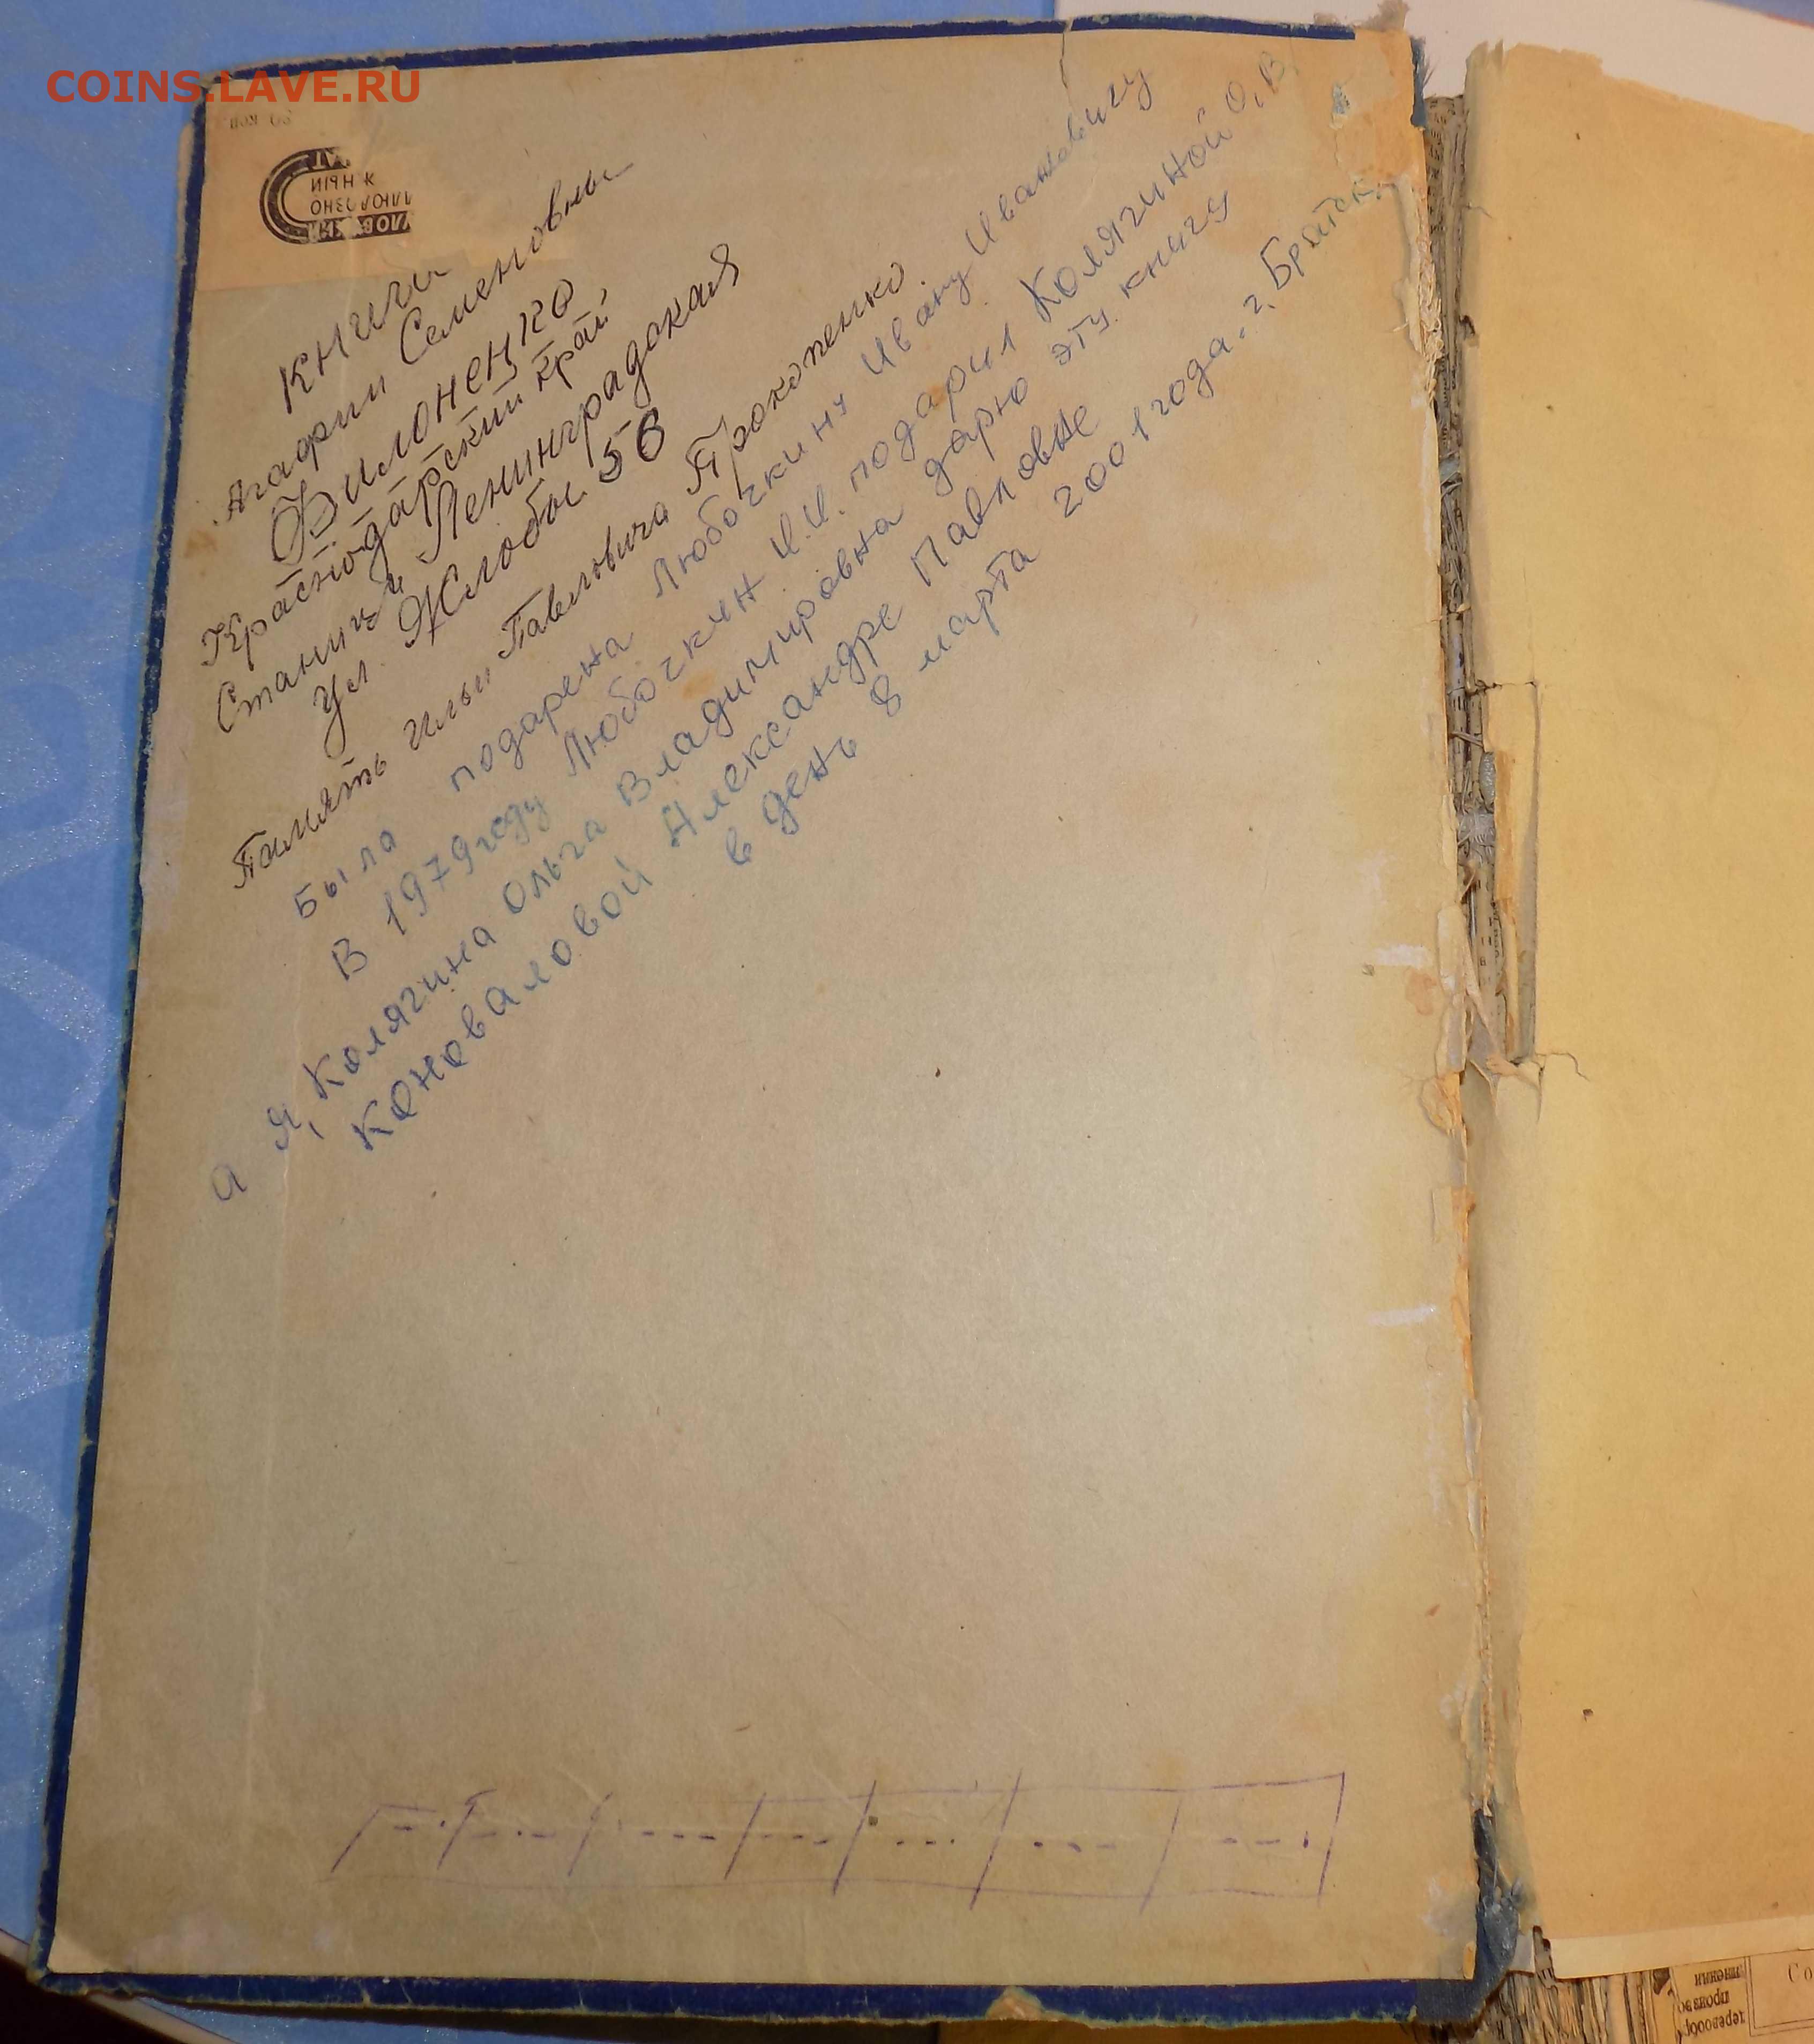 COINS.LAVE.RU
Книги
Агафии Семеновны
Вилоненко
Краснодарский край
Станица Ленинградская
ул. Жлобы 56
Память Ильи Павловича Прокопенко
Была подарена Любочкину Ивану Ивановичу
В 1979 году Любочкин И.И. подарил Колягиной О.В.
а я, Колягина Ольга Владимировна дарю эту книгу
Коноваловой Александре Павловне
в день 8 марта 2001 года. г. Братск.